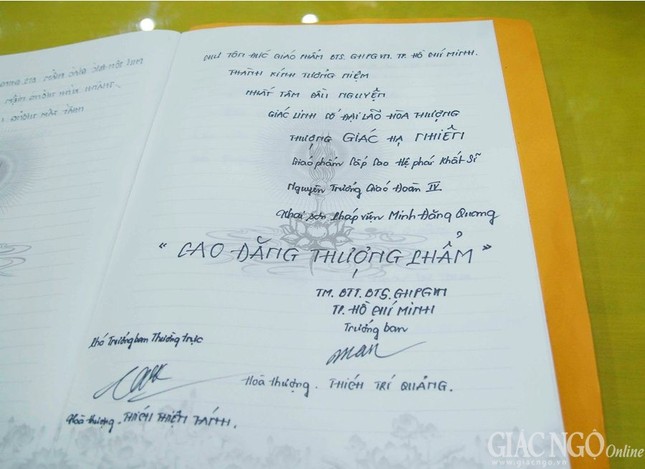 CHƯ TÔN ĐỨC GIÁO PHẨM BTS. GHPGVN. TP. HỒ CHÍ MINH.
THÀNH KÍNH TƯỞNG NIỆM
NHẤT TÂM CẦU NGUYỆN
GIÁC LINH CỐ ĐẠI LÃO HÒA THƯỢNG
THƯỢNG GIÁC HẠ NHIÊN
Giáo phẩm Cấp Cao Hệ phái Khất Sĩ
Nguyên Trưởng Giáo Đoàn IV
Khai sơn Pháp viện Minh Đăng Quang
“ CAO ĐĂNG THƯỢNG PHẨM ”
TM. BTT. BTS. GHPGVN
TP. HỒ CHÍ MINH
Trưởng ban
Phó Trưởng ban Thường trực
Hoà thượng. THÍCH TRÍ QUẢNG.
Hoà thượng. THÍCH THIỆN TÁNH.
GIÁC NGỘ Online
www.giacngo.vn